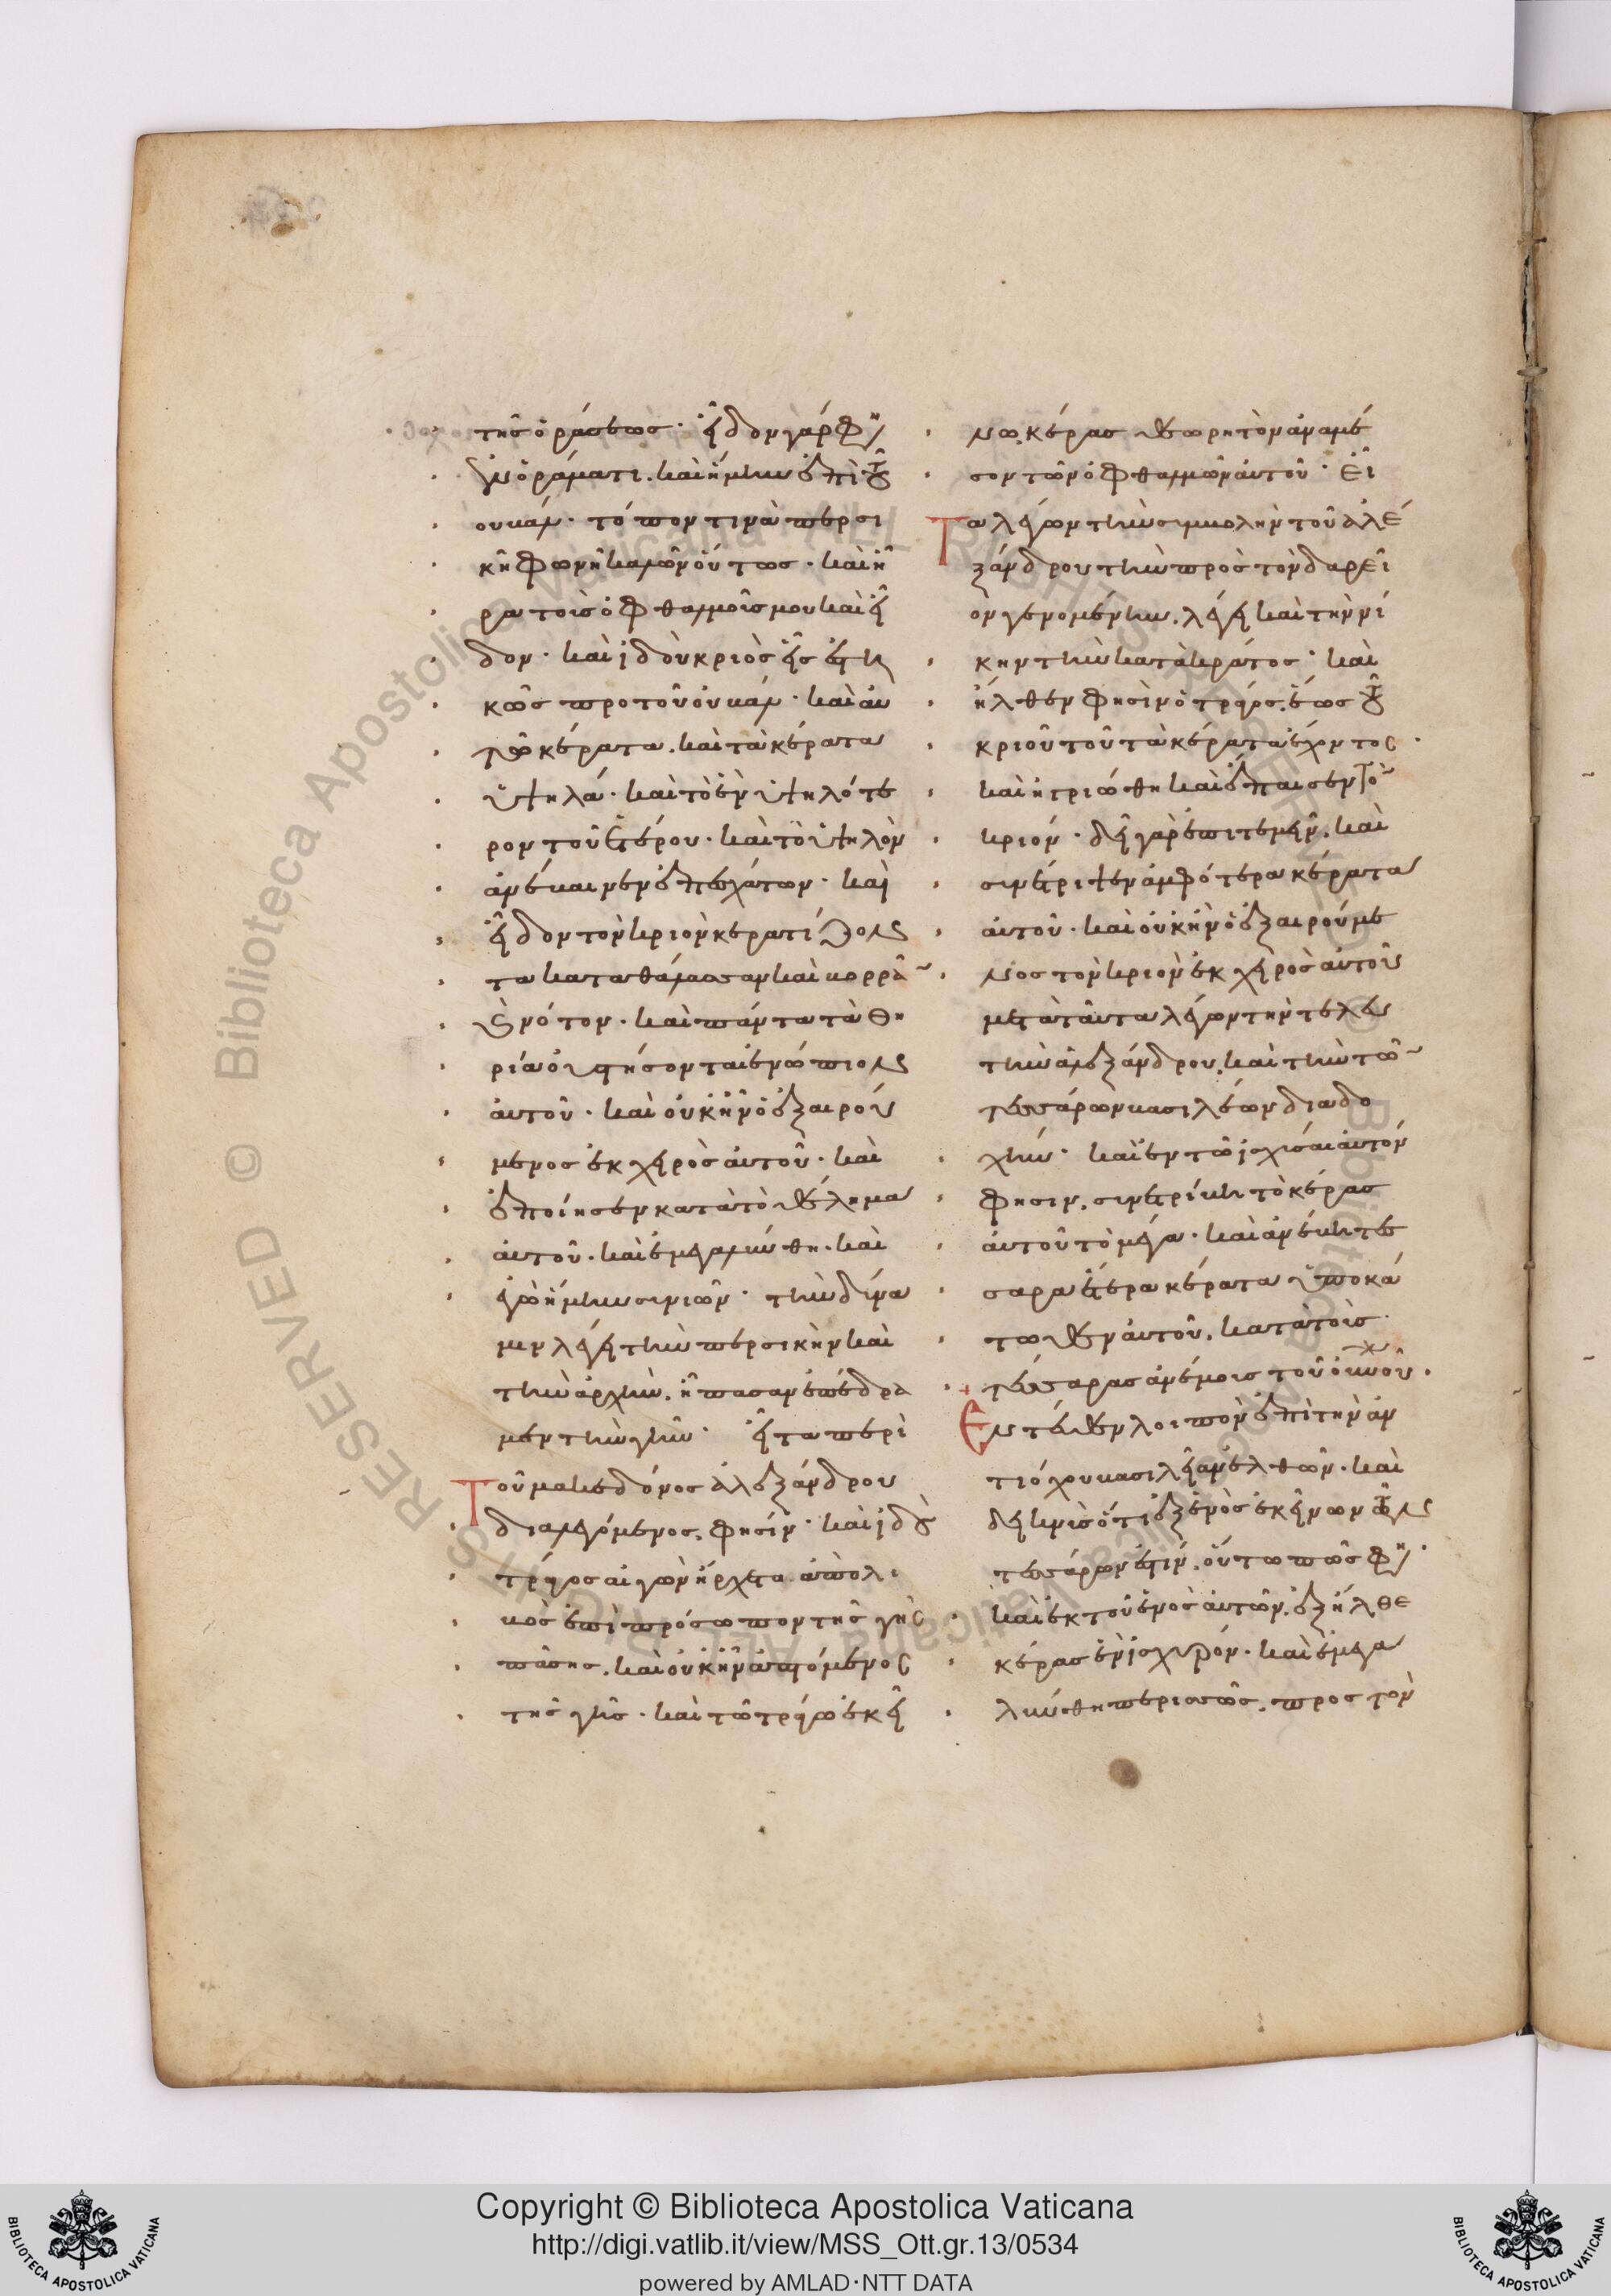 τῆς ὁράσεως· εἶδον γάρ φη
ἐν ὁράματι. καὶ ἤμην ἐπὶ τοῦ
ουβάλ· τόπον τινὰ περσι
κῇ φωνῇ καλῶν οὕτως· καὶ ἦ
ρα τοῖς ὀφθαλμοῖς μου καὶ εἶ
δον· καὶ ἰδοὺ κριὸς εἷς ἑστη
κὼς προ τοῦ οὐβάλ· καὶ αυ
τῶ κέρατα. καὶ τὰ κέρατα
ὑψηλά· καὶ τὸ ἓν ὑψηλότε
ρον τοῦ ἑτέρου· καὶ τὸ ὑψηλὸν
ἀνέβαινεν ἐπεσχάτων· καὶ
εἶδον τὸν κριὸν κερατίζοντα
τα κατα θάλασσαν καὶ βορρᾶν
καὶ νότον· καὶ πάντα τὰ θη
ρία οὐ στήσονται ἐνώπιον
αὐτοῦ· καὶ οὐκ ἦν ὁ ἐξαιρού
μενος ἐκ χειρὸς αὐτοῦ· καὶ
ἐποίησεν κατὰ τὸ θέλημα
αὐτοῦ. καὶ ἐμεγαλύνθη. καὶ
ἐγὼ ἤμην συνιῶν· τὴν δύνα
μιν λέγει τὴν περσικὴν καὶ
τὴν ἀρχὴν. ἣ πασαν ἐπέδρα
μεν τὴν γῆν· εἶτα περὶ
τοῦ μακεδόνος ἀλεξάνδρου
διαλεγόμενος. φησίν· καὶ ἰδοὺ
τράγος αἰγῶν ἤρχετο ἀπὸ λι
βὸς ἐπὶ πρόσωπον τῆς γῆς
πάσης. καὶ οὐκ ἦν ἁπτόμενος
τῆς γῆς· καὶ τῶ τράγω ἐκεί
νω, κέρας θεωρητὸν ἀναμέ
σον τῶν ὀφθαλμῶν αὐτοῦ· εἶ
τα λέγων τὴν συμβολὴν τοῦ ἀλε
ξάνδρου τὴν πρὸς τὸν δαρεῖ
ον γενομένην. λέγει καὶ τὴν νί
κην τὴν κατὰ κράτος· καὶ
ἦλθεν φησὶν ὁ τράγος. ἕως τοῦ
κριοῦ τοῦ τὰ κέρατα ἔχοντος·
καὶ ἠγριώθη καὶ ἔπαισεν τὸν
κριόν· δεῖ γὰρ ἐπιτεμεῖν. καὶ
συνέτριψεν ἀμφότερα κέρατα
αὐτοῦ· καὶ οὐκ ἦν ὁ ἐξαιρούμε
νος τὸν κριὸν ἐκ χειρὸς αὐτοῦ
μετὰ ταῦτα λέγων τὴν τελευ
τὴν ἀλεξάνδρου. καὶ τὴν τῶν
τεσσάρων βασιλέων διαδο
χὴν· καὶ ἐν τῶ ἰσχῦσαι αὐτόν
φησιν. συνετρίβη τὸ κέρας
αὐτοῦ τὸ μέγα· καὶ ἀνέβη τέσ
σαρα ἕτερα κέρατα ὑποκά
τωθεν αὐτοῦ. κατὰ τοὺς
τέσσαρας ἀνέμους τοῦ οὐνοῦ·
Ἐντεῦθεν λοιπὸν ἐπὶ τὴν ἀν
τιόχου βασιλείαν ἐλθὼν. καὶ
δεικνὺς ὅτι ἐξ ἑνὸς ἐκείνων τῶν
τεσσάρων ἐστιν. οὕτω πῶς φη·
καὶ ἐκ τοῦ ἑνὸς αὐτῶν. ἐξῆλθε
κέρας ἓν ἰσχυρόν· καὶ ἐμεγα
λύνθη περισσῶς. προς τὸν
Copyright © Biblioteca Apostolica Vaticana
http://digi.vatlib.it/view/MSS_Ott.gr.13/0534
powered by AMLAD·NTT DATA